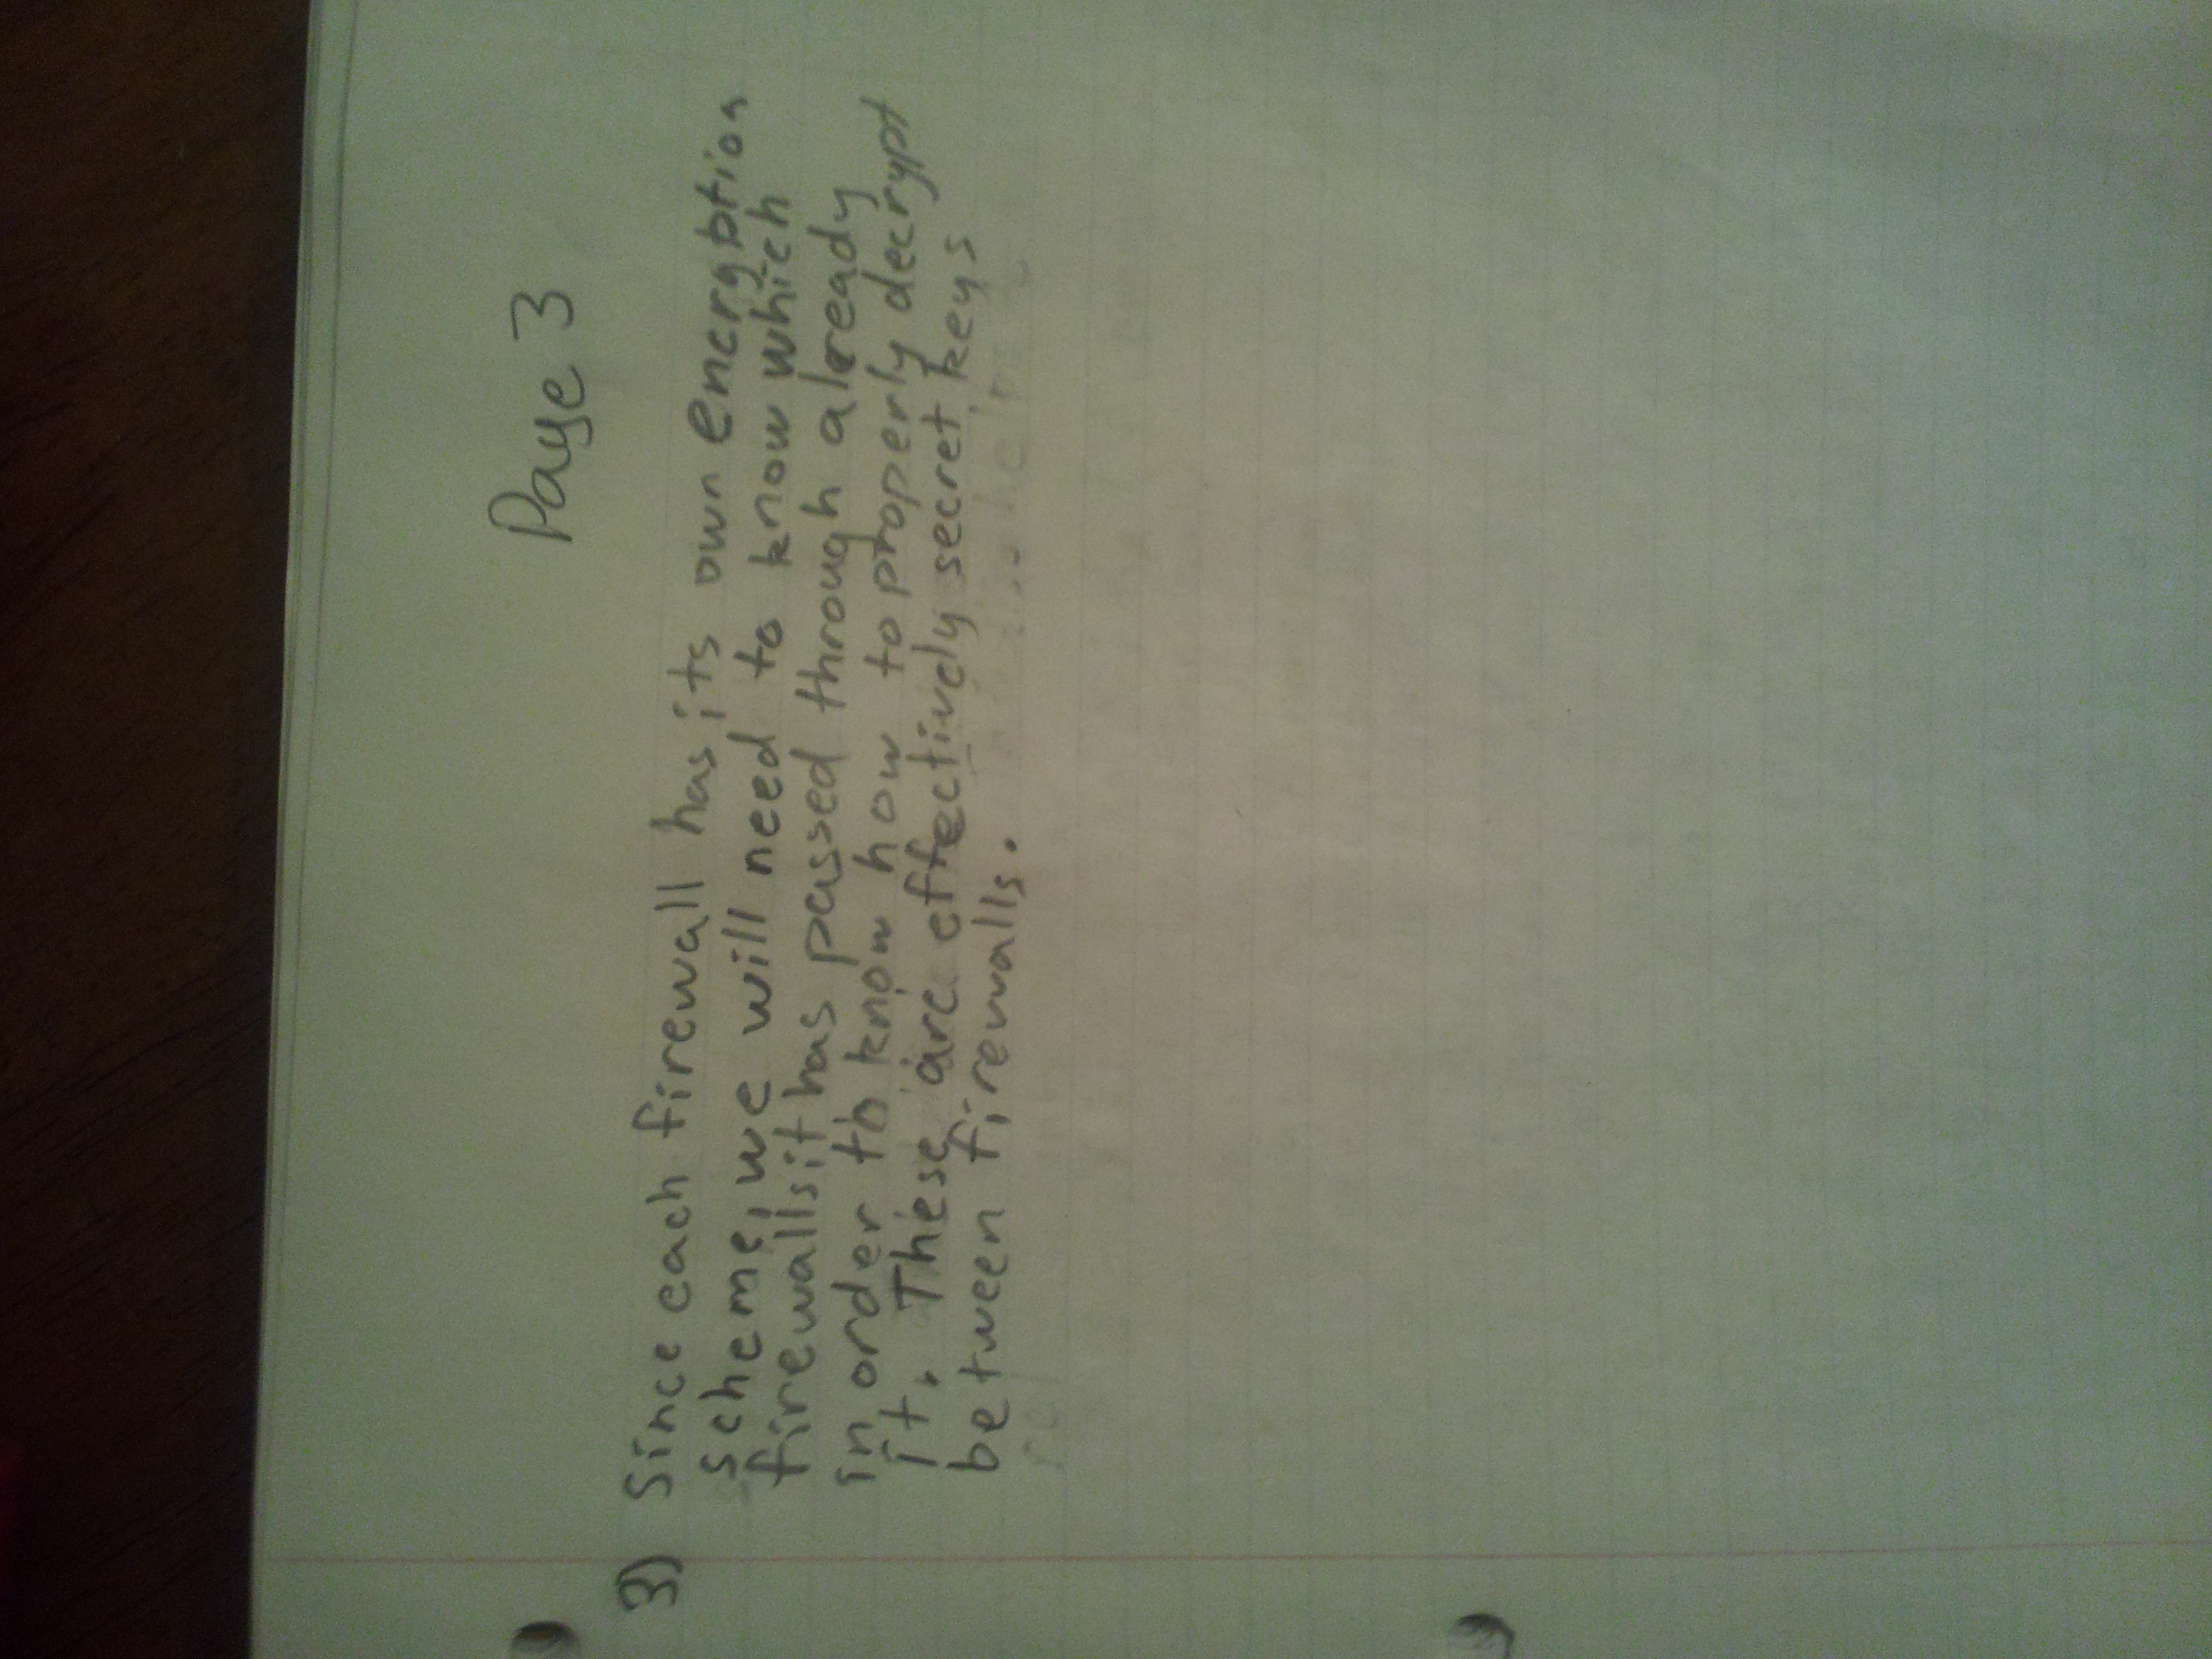 Page 3
3) Since each firewall has its own encryption
scheme, we will need to know which
firewalls it has passed through already
in order to know how to properly decrypt
it. These are effectively secret keys
between firewalls.